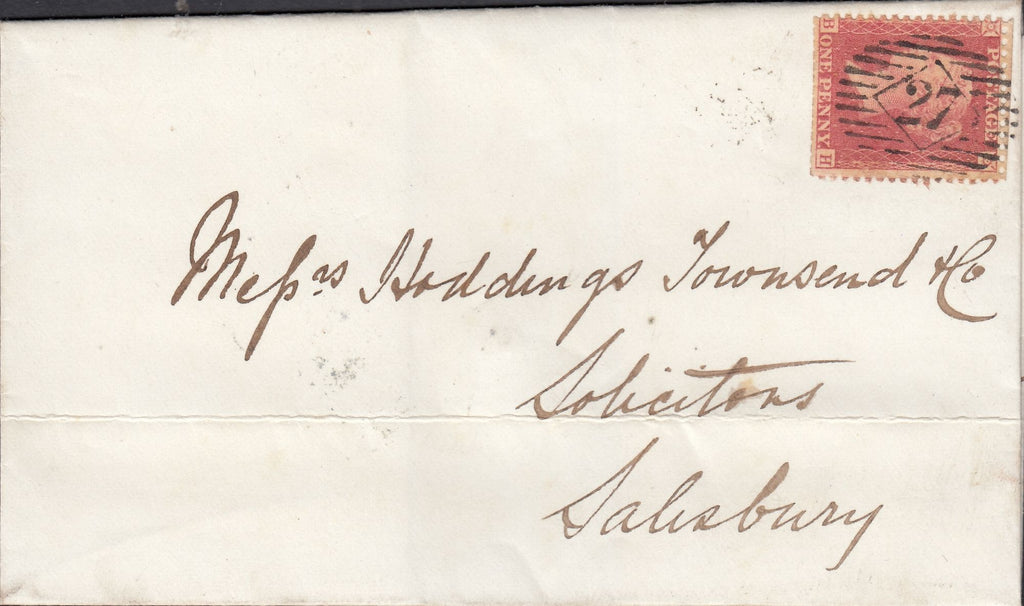 POSTAGE
27
B ONE PENNY H
Meſsrs Hoddings Townsend & Co
Solicitors
Salisbury